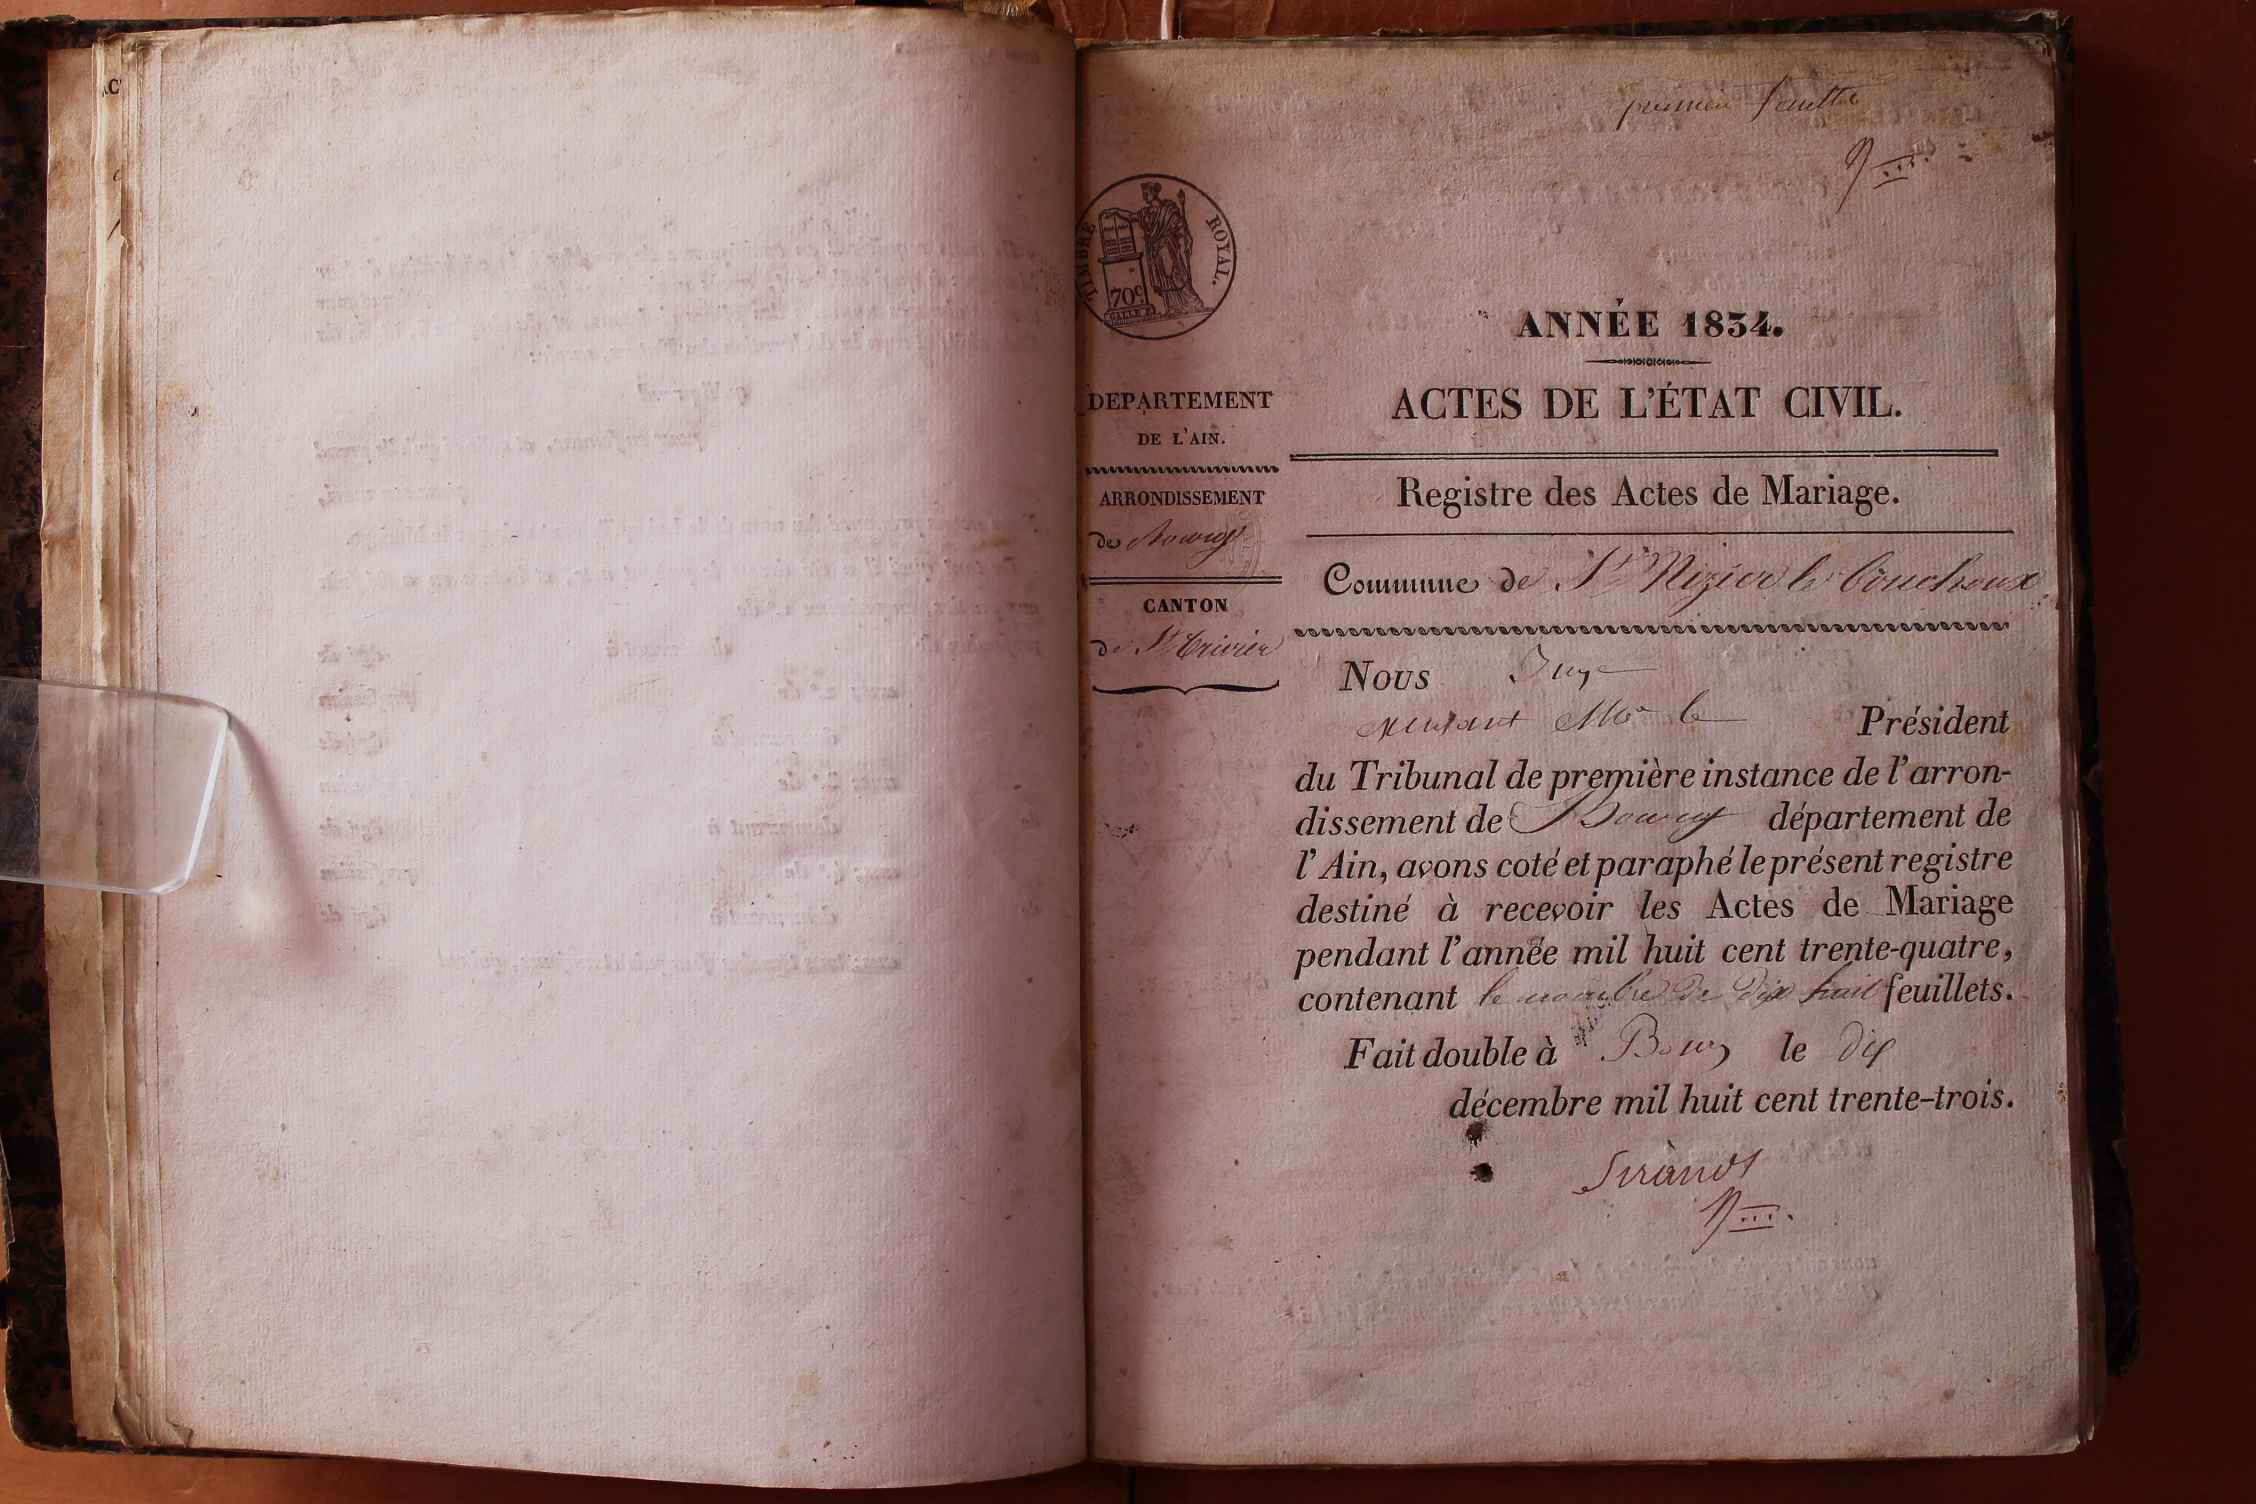 premier feuillet
TIMBRE ROYAL.
70c
ANNÉE 1834.
ACTES DE L'ÉTAT CIVIL.
Registre des Actes de Mariage.
Commune de St Nizier le Bouchoux
DEPARTEMENT
DE L'AIN.
ARRONDISSEMENT
de Bourg
CANTON
de St Trivier
Nous Juge
Mr le Président
du Tribunal de première instance de l'arron-
dissement de Bourg département de
l'Ain, avons coté et paraphé le présent registre
destiné à recevoir les Actes de Mariage
pendant l'année mil huit cent trente-quatre,
contenant le nombre de dix huit feuillets.
Fait double à Bourg le dix
décembre mil huit cent trente-trois.